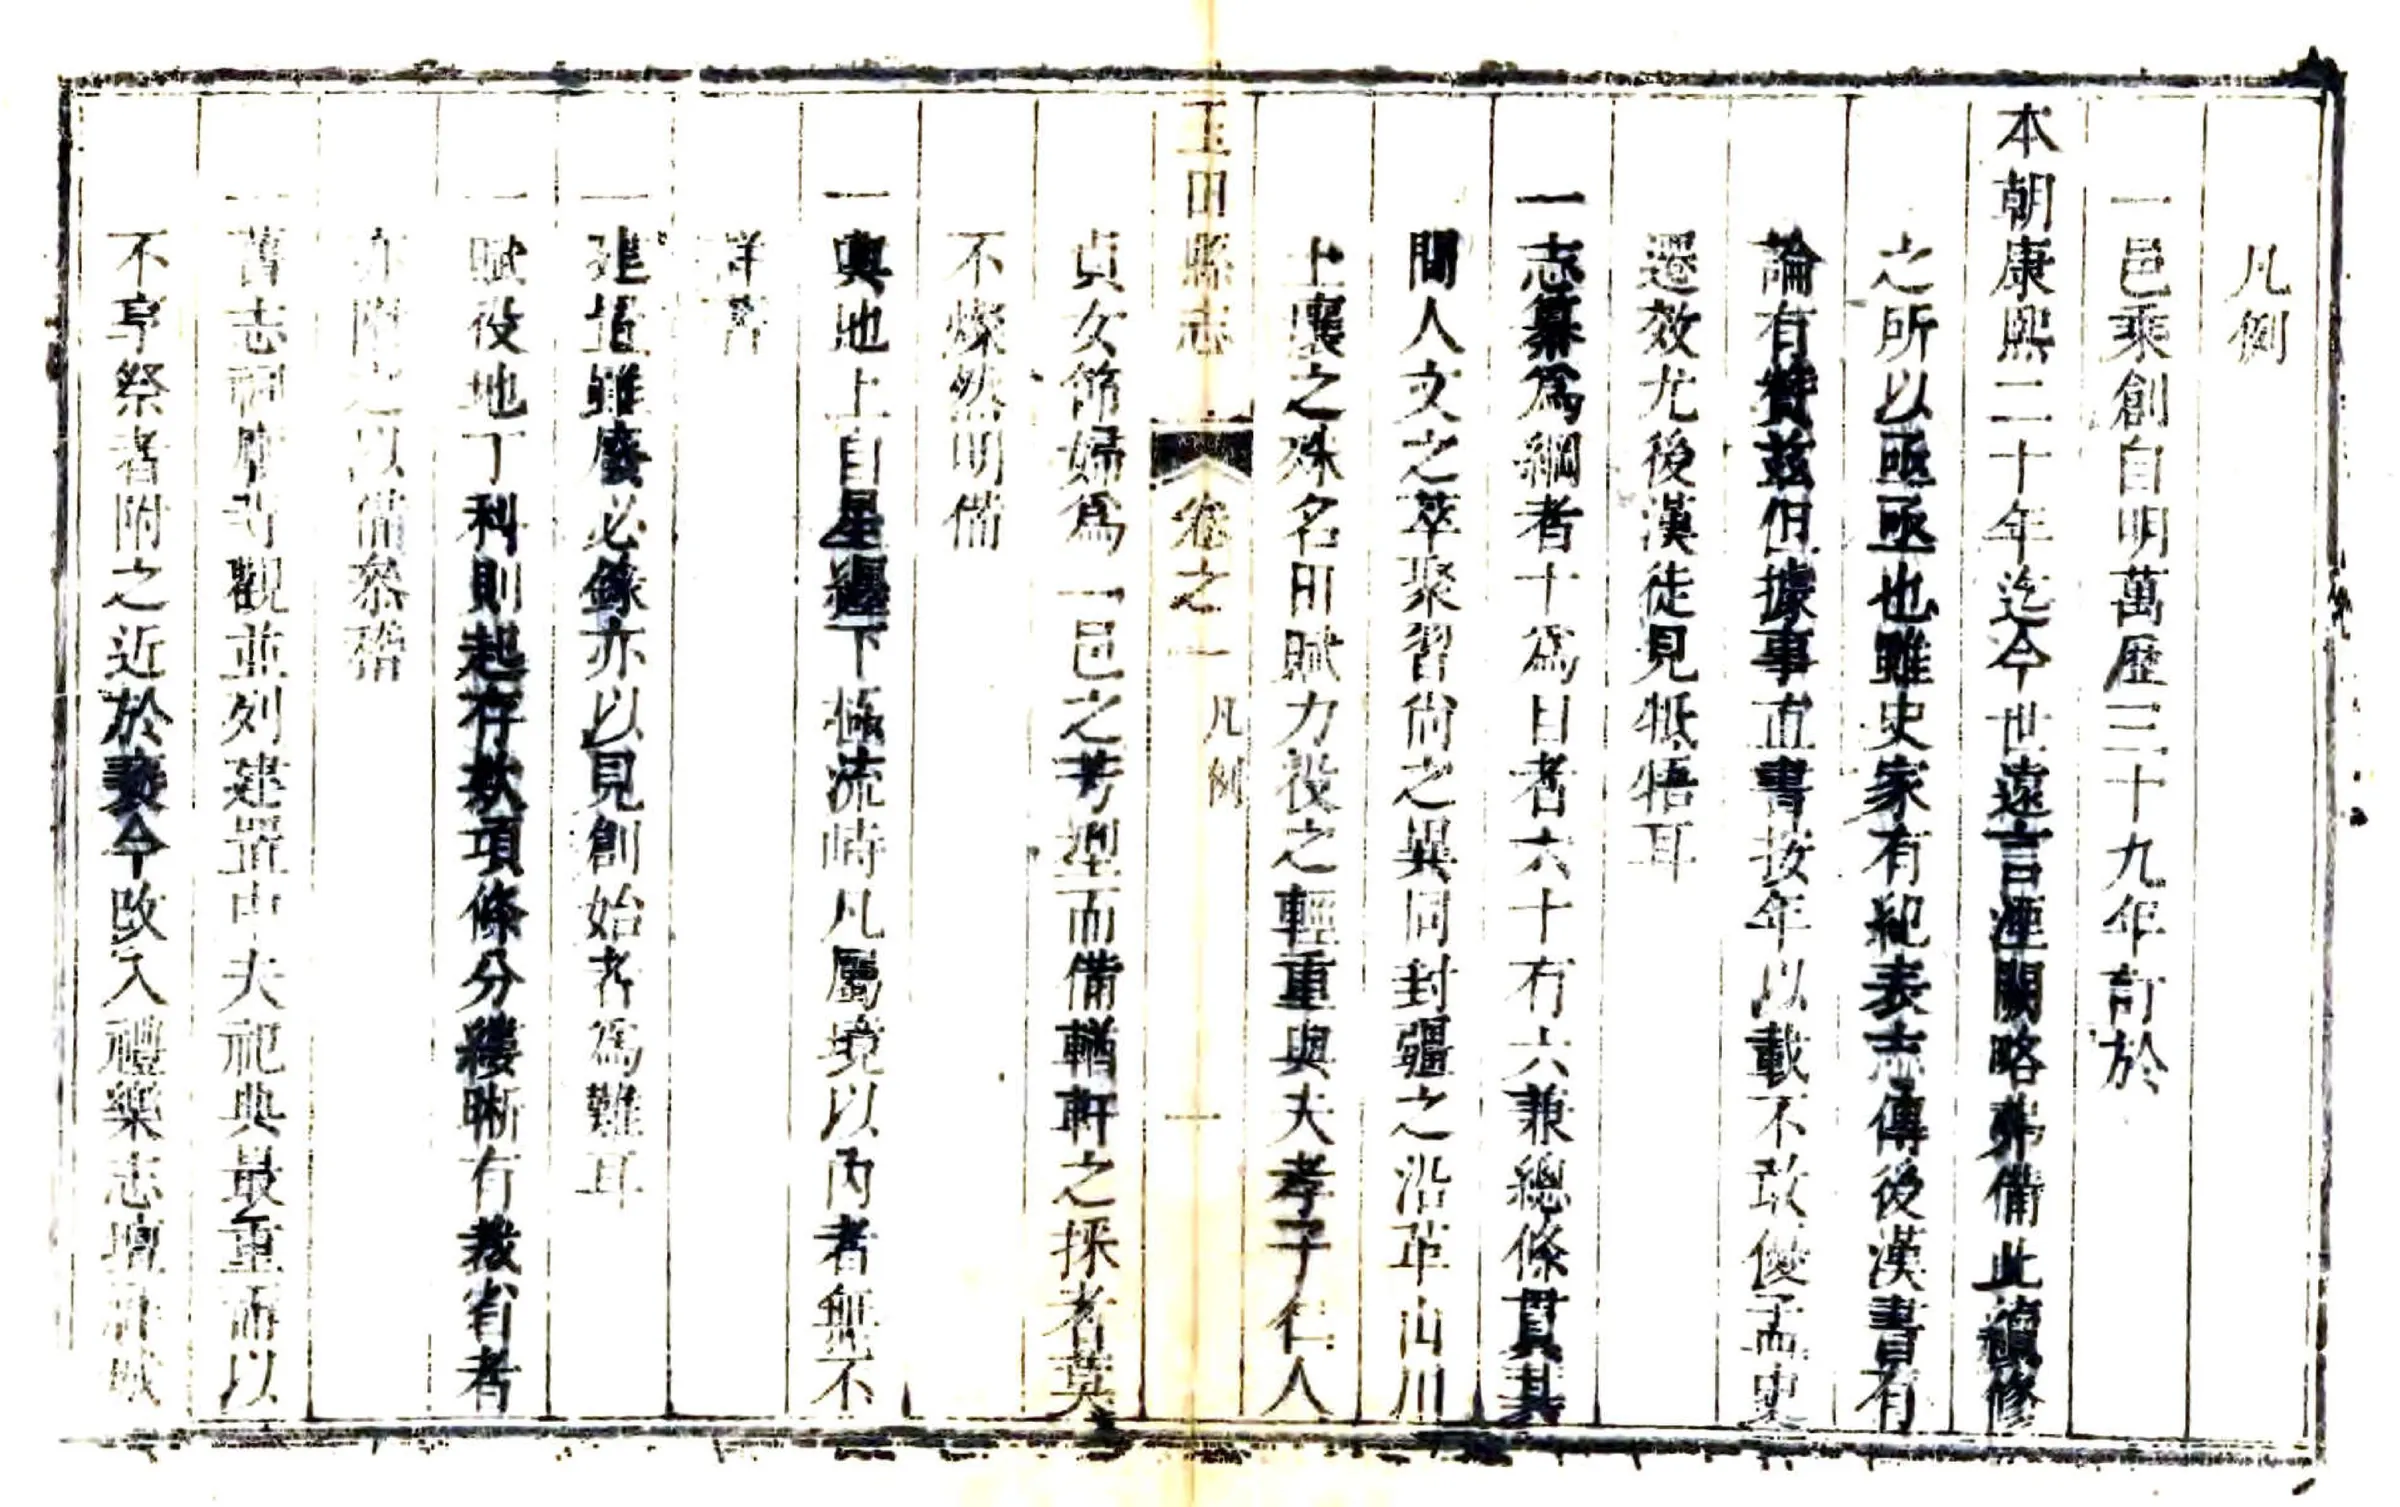 凡例
一邑乘創自明萬歷三十九年訂於
本朝康熙二十年迄今世遠言湮闕略弗備此續修
之所以亟亟也雖史家有紀表志傳後漢書有
論有贊茲但據事直書按年以載不敢僾孟史
還效尤後漢徒見牴牾耳
一志纂爲綱者十爲目者六十有六兼總條貫其
間人文之萃聚習尚之異同封疆之沿革山川
土壤之殊名田賦力役之輕重與夫孝子仁人
玉田縣志 卷之一 凡例 一
貞女節婦爲一邑之芳型而備輶軒之採者莫
不燦然明備
一輿地上自星纏下極流峙凡屬境以內者無不
詳著
一建置雖廢必錄亦以見創始者爲難耳
一賦役地丁科則起存款項條分縷晰有裁省者
亦附之以備叅稽
一舊志祠廟寺觀並列建置中夫祀典最重而以
不享祭者附之近於褻今改入禮樂志壇